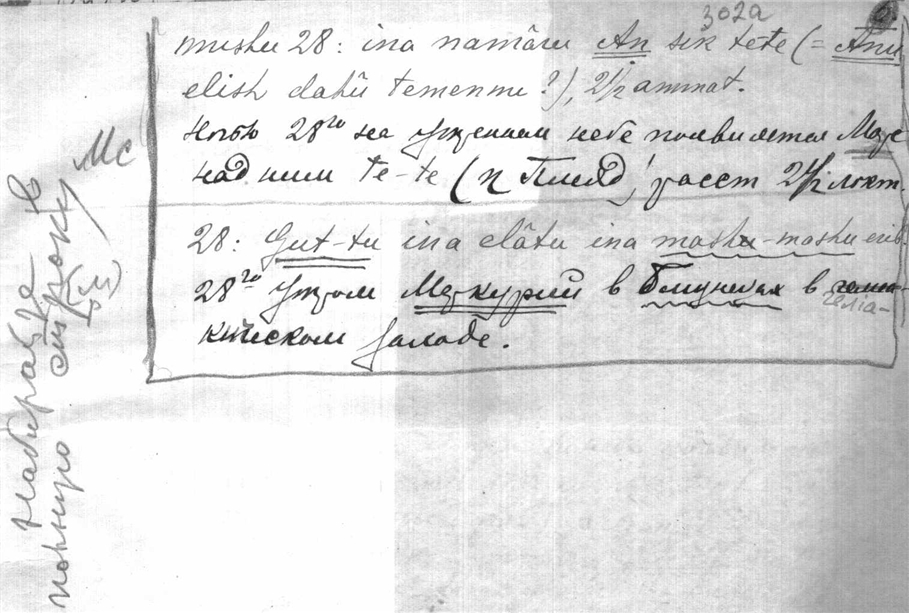 302а
mushu 28: ina namâru An sik tete (= Anu
elish dahû temennu?), 2 1/2 ammat.
Ночью 28го на утреннем небе появляется Марс
над ними te-te (η Плеяд) растет 2 1/2 локт.
28: Gut-tu ina elâtu ina mashu-mashu erib.
28го утром Меркурий в Близнецах в гелиа-
ктеском заходе.
Мс
Набирать в
полную строку
(м)